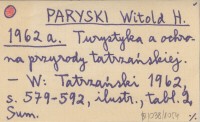 PARYSKI Witold H.
1962 a. Turystyka a ochro-
na przyrody tatrzańskiej.
- W: Tatrzański 1962,
s. 579-592, ilustr., tabl. 2,
Sum.